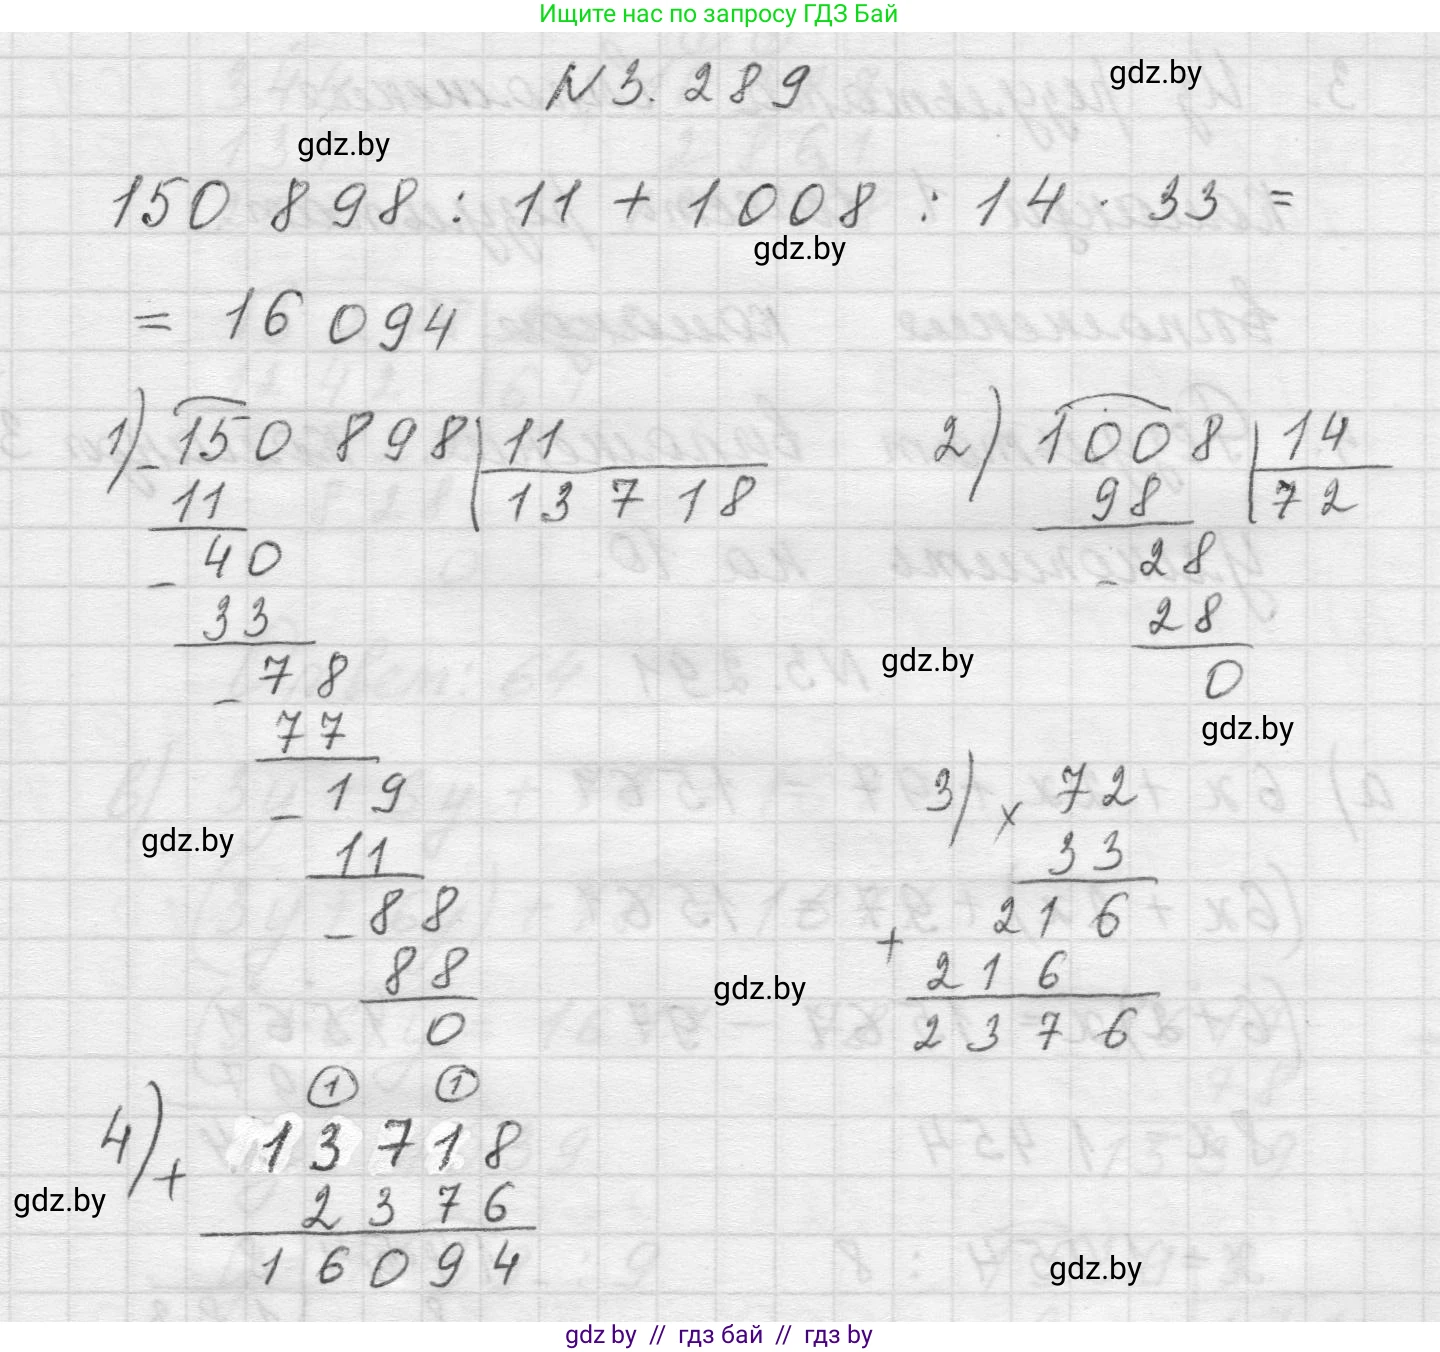 Ищите нас по запросу ГДЗ Бай
N3.289
gdz.by
gdz.by
150 898 : 11 + 1008 : 14 · 33 =
gdz.by
= 16 094
1) - 150 898 | 11
11 13 718
- 40
33
- 78
77
- 19
11
- 88
88
0
2) 1008 | 14
98 72
- 28
28
0
gdz.by
gdz.by
gdz.by
3) x 72
33
216
+ 216
2376
gdz.by
4) + 1 1
13718
2376
16094
gdz.by
gdz.by
gdz by // гдз бай // гдз by